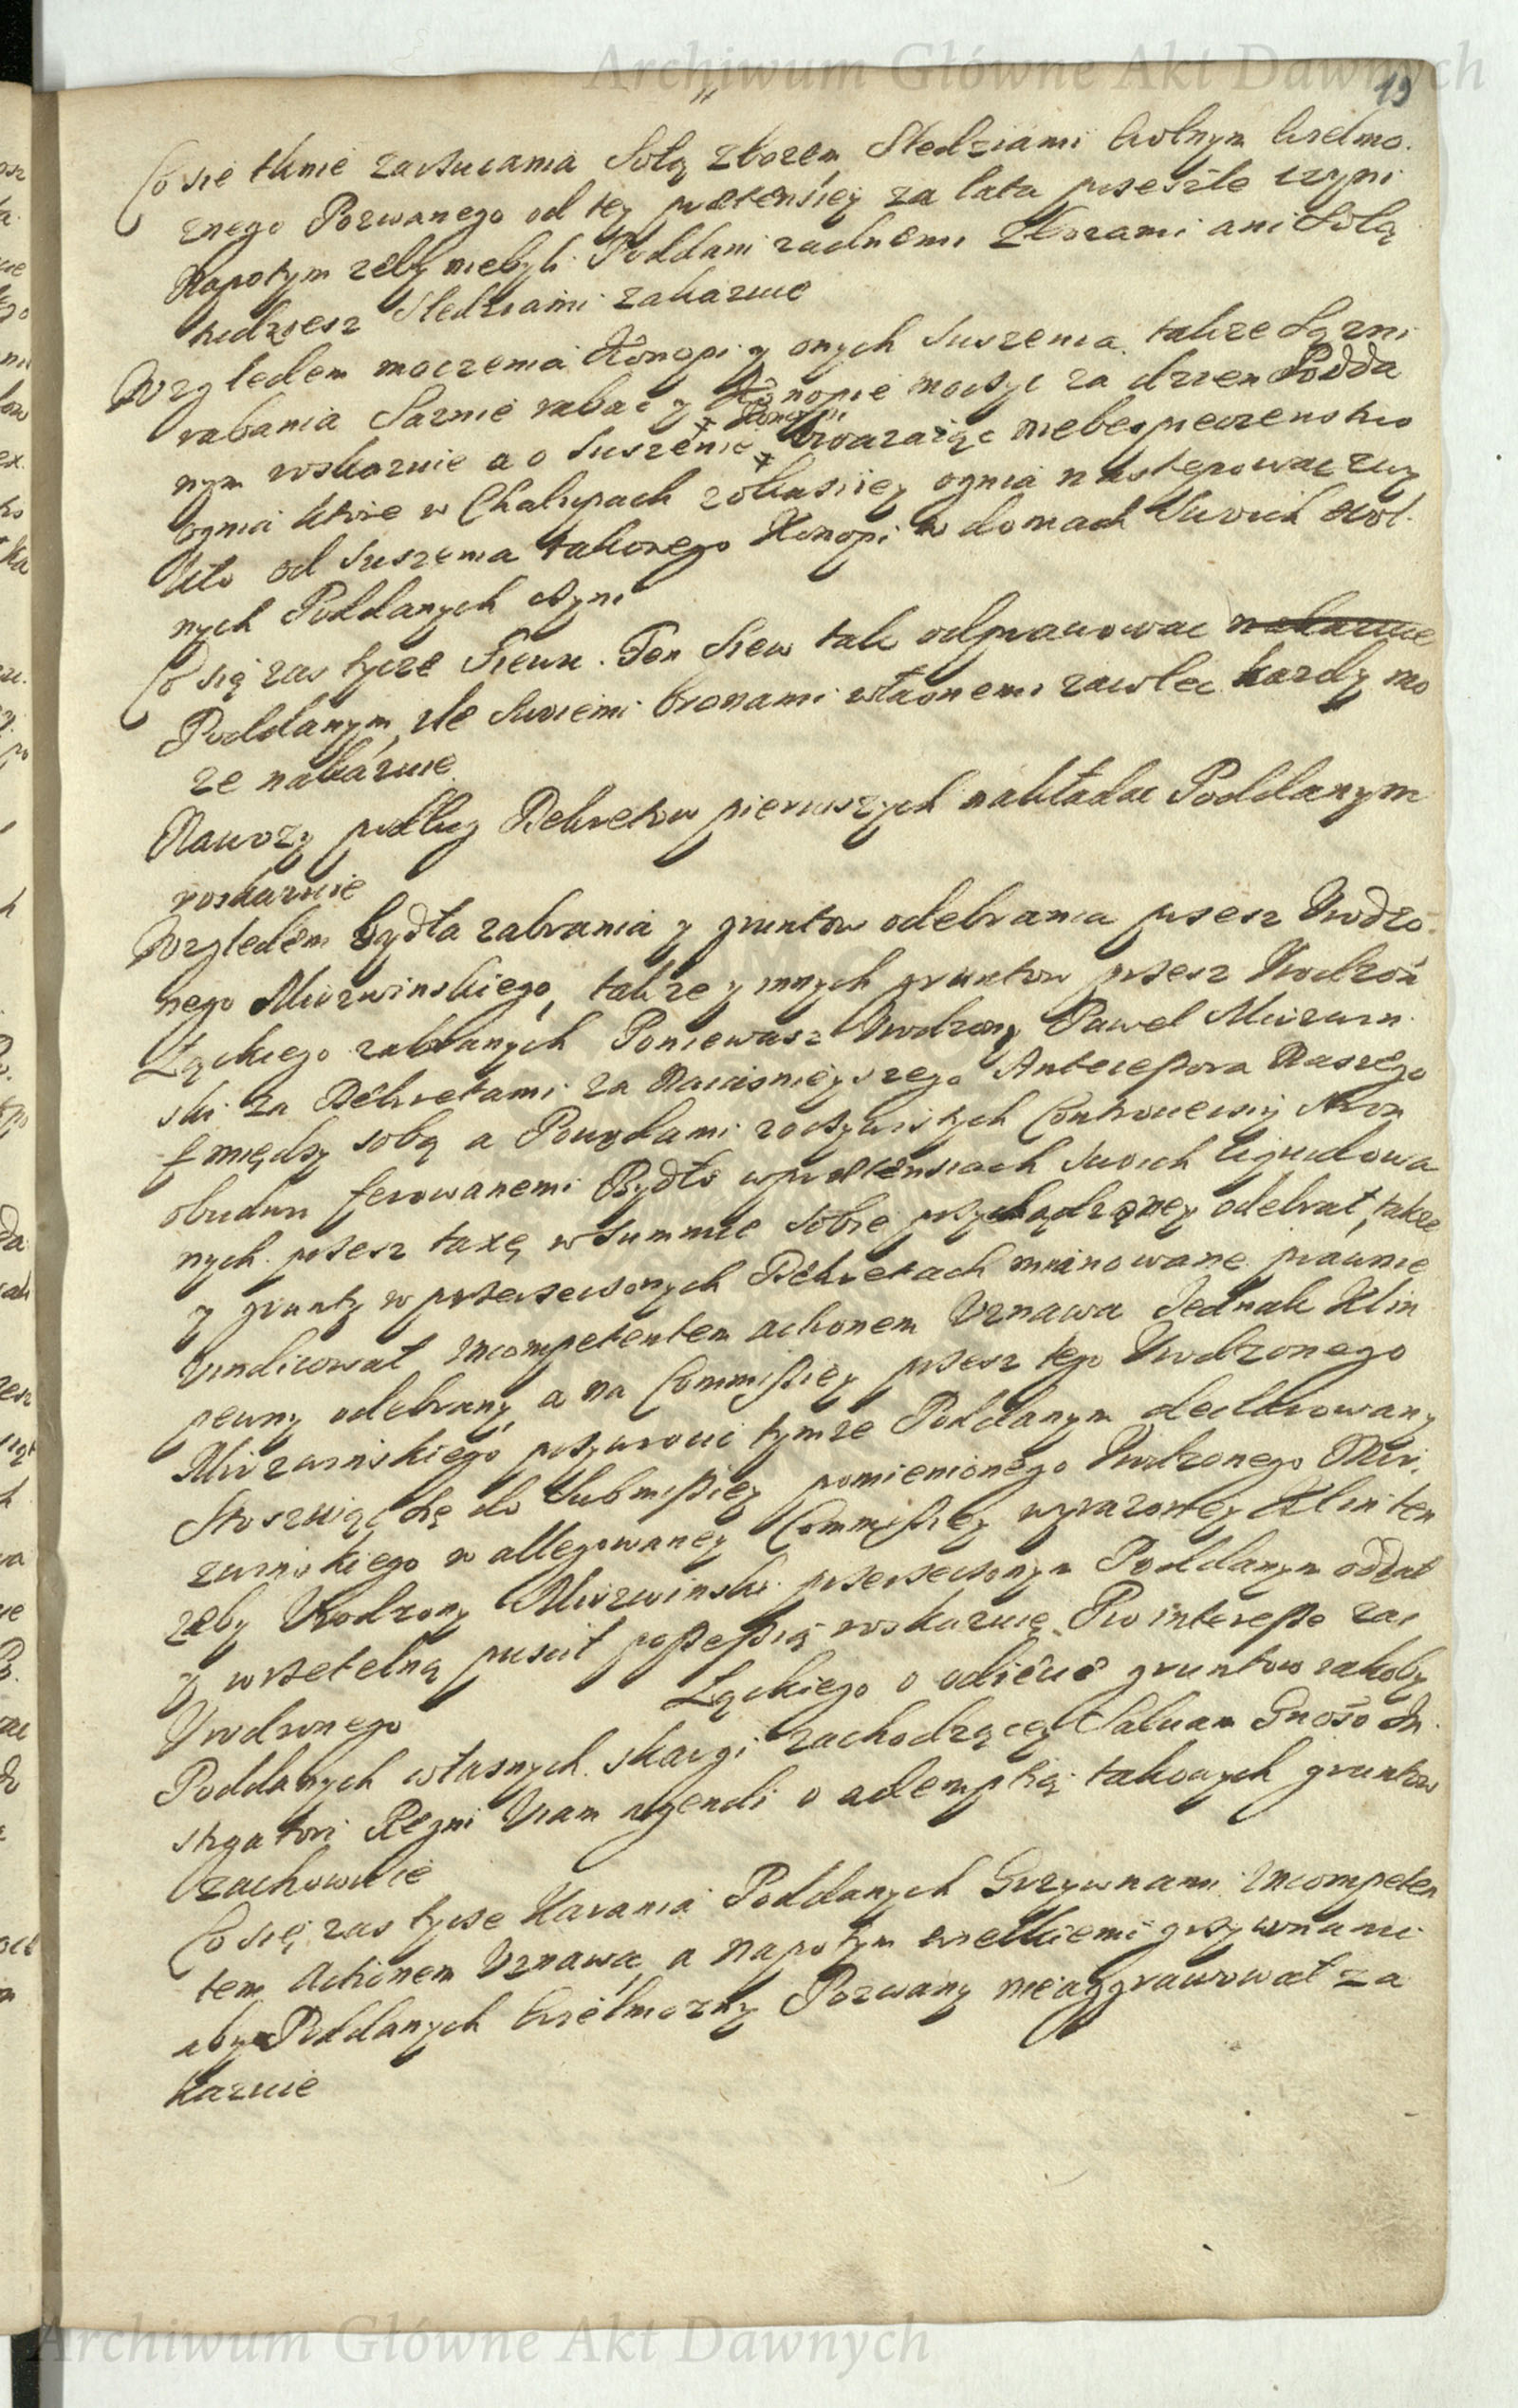 Archiwum Główne Akt Dawnych
19
Co się tknie zarzucania Solą zbożem Sledziami Wolnym Wielmo.
żnego Pozwanego od tey pretensiey za lata przeszłe czyni
Napotym zeby niebyli Poddani żadnemi zbożami ani Solą
tudzesz Sledziami zakazuie
Względem moczenia Konopi y onych Suszenia także Sązni
rabania Sąznie rabac y Konopie moczyc za dzien Podda
nym wskazuie a o Suszenie Konopi uwazaiąc niebespieczenstwo
ognia ktore w Chałupach zokasiiey ognia nastempowac zwy
kło od Suszenia takowego Konopi w domach Swoich Wol.
nych Poddanych czyni
Co się zas tycze Siewu. Ten Siew tak odprawowac nakazuie
Poddanym ile Swiemi bronami własnemi zawlec kazdy mo
ze nakazuie
Nawozy podług Dekretow pierwszych nakładac Poddanym
roskazuie
Względem bydła zabrania y gruntow odebrania przesz Urodzo
nego Mierzwinskiego, także y innych gruntow przesz Urodzon
Łąckiego zabranych Poniewasz Urodzony Paweł Mierzwin
ski za Dekretami za Naiasnieyszego Antecessora Naszego
między sobą a Powodami zoczywistych Controwersiy stron
obudwu ferowanemi Bydło wpretensiach Swoich likwidowa
nych przesz taxę w Summie Sobie przysądzoney odebrał, także
y grunty w przerzeczonych Dekretach mianowane prawnie
windicował incompetentem actionem Uznawa Jednak Klin
pewny odebrany a na Commissiey przesz tego Urodzonego
Mierzwinskiego przywroci tymże Poddanym declarowany
Stosuiąc Się do Submissiey pomienionego Urodzonego Mier.
zwinskiego w allegowaney Commissiey wyrazoney Klin ten
zeby Urodzony Mierzwinski przerzeczonym Poddanym oddał
y wrzetelną puscił possessią roskazuie. Pro interesse zas
Urodzonego Łąckiego o odięcie gruntow jakoby
Poddanych własnych skargi zachodzącey Saluam Gnoso In
stigatori Regni Viam agendi o ademptią takowych gruntow
zachowuie
Co się zas tycze Karania Poddanych Grzywnami incompeten
tem Actionem Uznawa, a napotym wielkiemi grzywnami
aby Poddanych Wielmozny Pozwany nieaggrawował za
kazuie
Archiwum Główne Akt Dawnych